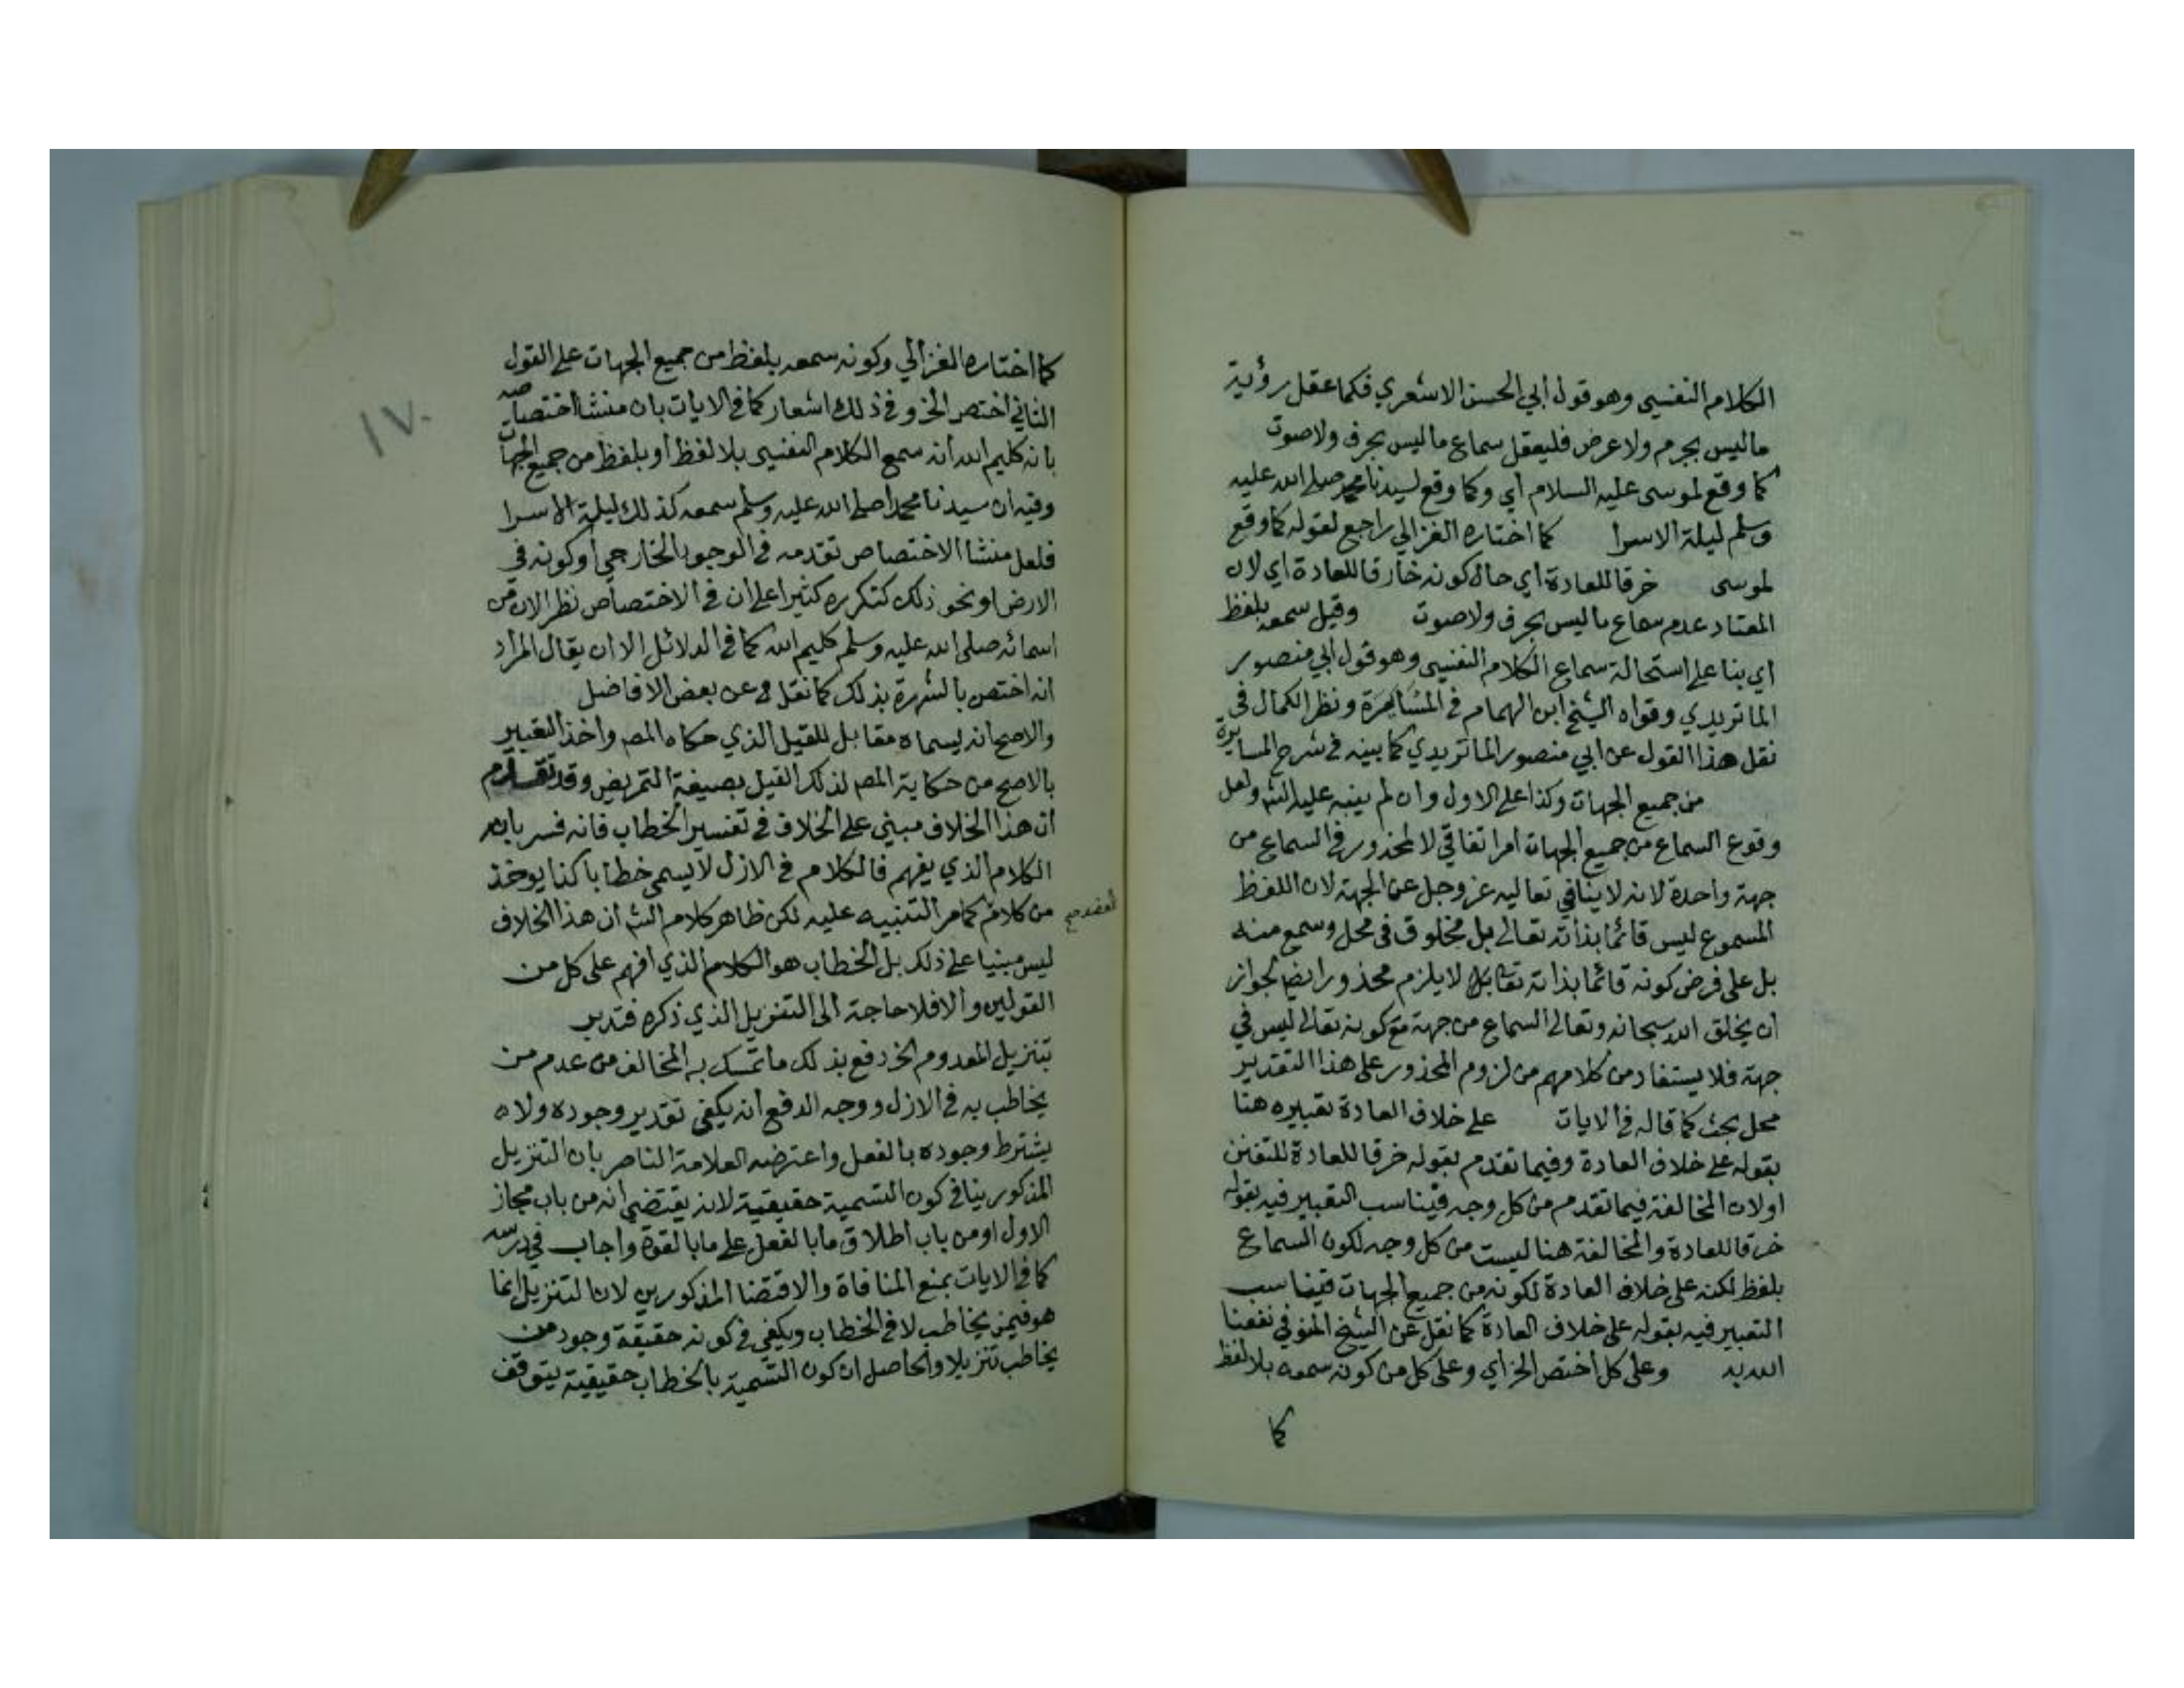 الكلام النفسي وهو قول أبي الحسن الاشعري فكما عقل رؤية
ماليس بجرم ولا عرض فليعقل سماع ما ليس بحرف ولا صوت
كما وقع لموسى عليه السلام أي وكما وقع لسيدنا محمد صلى الله عليه
وسلم ليلة الاسرا كما اختاره الغزالي راجع لقوله كما وقع
لموسى خرقا للعادة اي حال كونه خارقا للعادة اي لان
المعتاد عدم سماع ما ليس بحرف ولا صوت وقيل سمعه بلفظ
اي بنا على استحالة سماع الكلام النفسي وهو قول أبي منصور
الماتريدي وقواه الشيخ ابن الهمام في المسايرة ونظر الكمال في
نقل هذا القول عن ابي منصور الماتريدي كما بينه في شرح المسايرة
من جميع الجهات وكذا على الاول وان لم ينبه عليه الش ولعل
وقوع السماع من جميع الجهات امر اتفاقي لا لمحذور في السماع من
جهة واحدة لانه لا ينافي تعاليه عز وجل عن الجهة لان اللفظ
المسموع ليس قائما بذاته تعالى بل مخلوق في محل وسمع منه
بل على فرض كونه قائما بذاته لا يلزم محذور ايضا لجواز
ان يخلق الله سبحانه وتعالى السماع من جهة مع كونه تعالى ليس في
جهة فلا يستفاد من كلامهم من لزوم المحذور على هذا التقدير
محل بحث كما قاله في الايات على خلاف العادة تعبيره هنا
بقوله على خلاف العادة وفيما تقدم بقوله خرقا للعادة للتفنن
اولان المخالفة فيما تقدم من كل وجه فيناسب التعبير فيه بقوله
خرقا للعادة والمخالفة هنا ليست من كل وجه لكون السماع
بلفظ لكنه على خلاف العادة لكونه من جميع الجهات فيناسب
التعبير فيه بقوله على خلاف العادة كما نقل عن الشيخ المنوفي نفعنا
الله به وعلى كل اختص الخ أي وعلى كل من كونه سمعه بلا لفظ
كما
كما اختاره الغزالي وكونه سمعه بلفظ من جميع الجهات على القول
الثاني اختص الخ وفي ذلك اشعار كما في الايات بان منشا اختصاصه
بانه كليم الله أنه سمع الكلام النفسي بلا لفظ أو بلفظ من جميع الجهات
وفيه ان سيدنا محمدا صلى الله عليه وسلم سمعه كذلك ليلة الاسرا
فلعل منشا الاختصاص تقدمه في الوجود الخارجي أو كونه في
الارض او نحو ذلك كتكرره كثيرا على ان في الاختصاص نظر الان من
اسمائه صلى الله عليه وسلم كليم الله كما في الدلائل الا ان يقال المراد
انه اختص بالشهرة بذلك كما نقل عن بعض الافاضل
والاصح انه يسماه مقابل للقيل الذي حكاه المص واخذ التعبير
بالاصح من حكاية المص لذلك القيل بصيغة التمريض وقد تقدم
ان هذا الخلاف مبني على الخلاف في تفسير الخطاب فانه فسر بانه
الكلام الذي يفهم فالكلام في الازل لا يسمى خطابا كذا يوخذ
من كلام كما مر التنبيه عليه لكن ظاهر كلام الش ان هذا الخلاف
ليس مبنيا على ذلك بل الخطاب هو الكلام الذي افهم على كل من
القولين والافلا حاجة الى التنزيل الذي ذكره فتدبر
تنزيل المعدوم الخ دفع بذلك ما تمسك به المخالف من عدم من
يخاطب به في الازل ووجه الدفع انه يكفي تقدير وجوده ولا
يشترط وجوده بالفعل واعترضه العلامة الناصر بان التنزيل
المذكور ينافي كون التسمية حقيقية لانه يقتضي انه من باب مجاز
الاول او من باب اطلاق ما بالفعل على ما بالقوة واجاب في درسه
كما في الايات بمنع المنافاة والاقتضا المذكورين لان التنزيل انما
هو فيمن يخاطب لا في الخطاب ويكفي في كونه حقيقة وجود من
يخاطب تنزيلا والحاصل ان كون التسمية بالخطاب حقيقية يتوقف
١٧٠